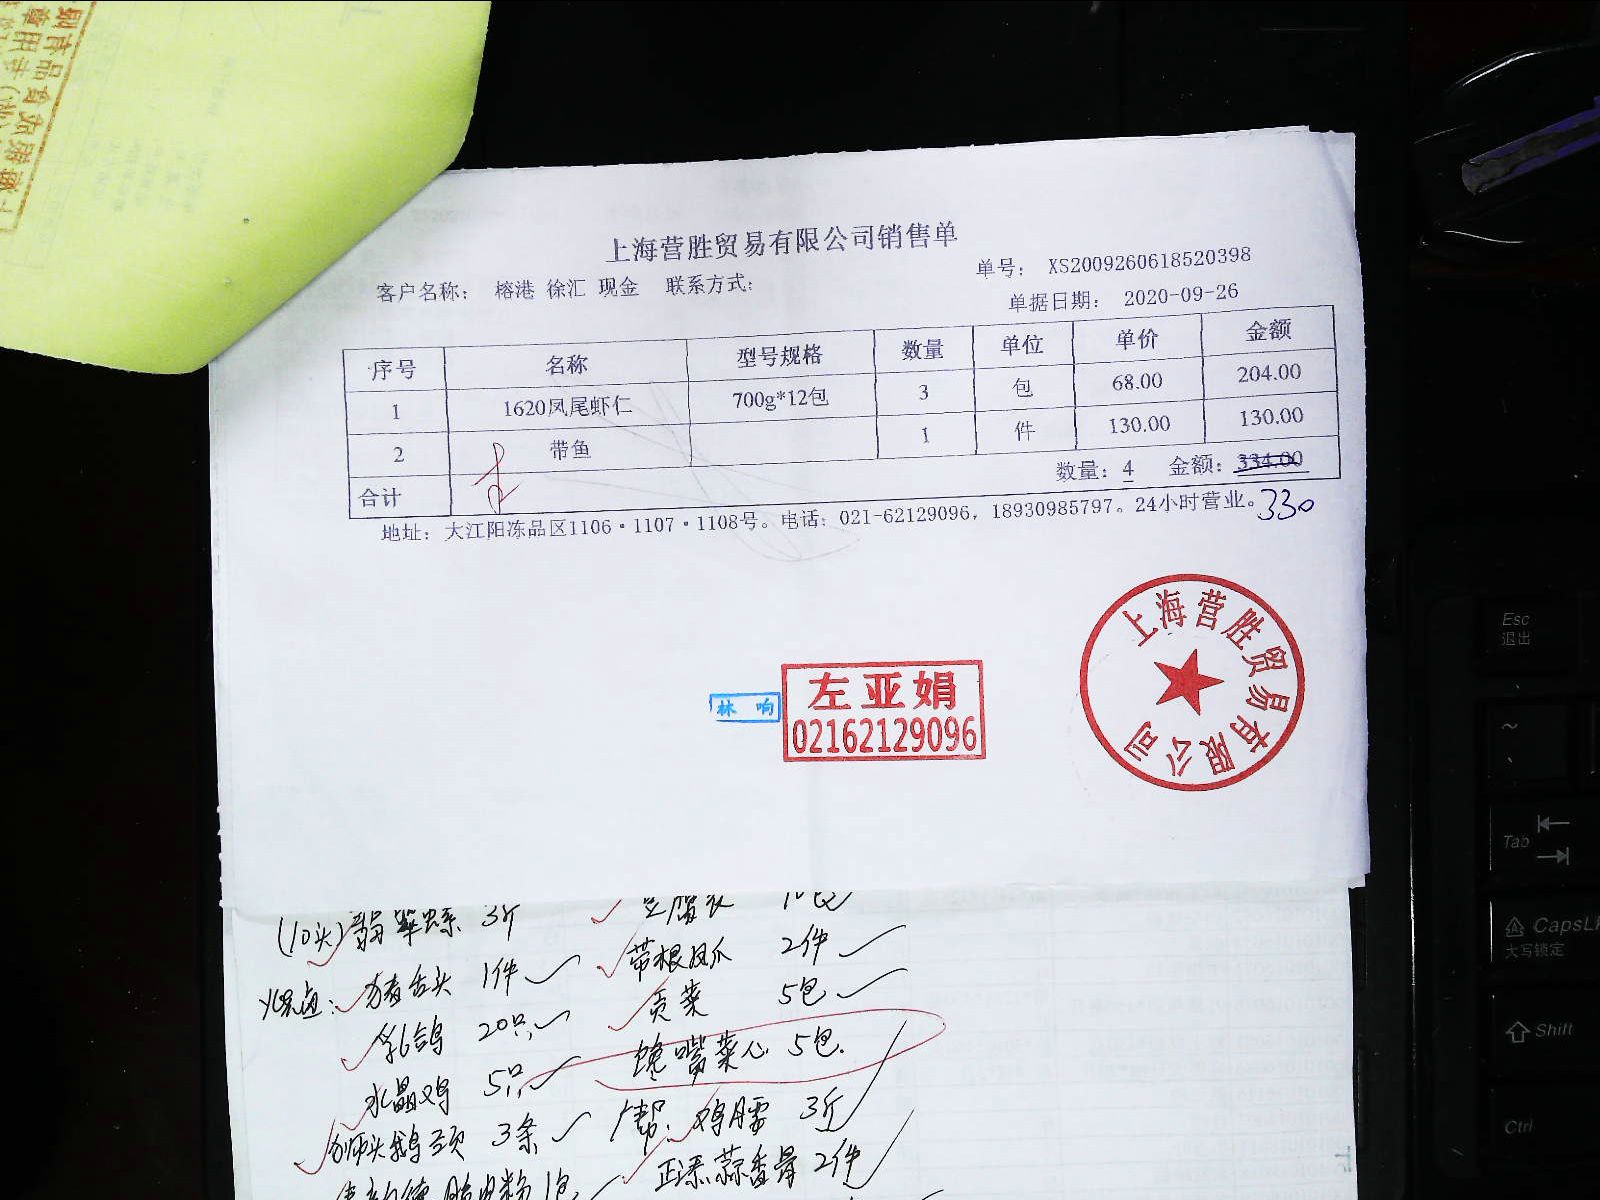 上海营胜贸易有限公司销售单
单号： XS2009260618520398
客户名称： 榕港 徐汇 现金 联系方式：
单据日期： 2020-09-26
序号 名称 型号规格 数量 单位 单价 金额
1 1620凤尾虾仁 700g*12包 3 包 68.00 204.00
2 带鱼 1 件 130.00 130.00
合计 数量：4 金额：334.00
330
地址：大江阳冻品区1106·1107·1108号。电话：021-62129096，18930985797。24小时营业。
上海营胜贸易有限公司
林 响
左亚娟
02162129096
(10头)翡翠螺 3斤 豆腐衣 10包
猪舌头 1件 带根凤爪 2件
乳鸽 20只 贡菜 5包
水晶鸡 5只 馋嘴菜心 5包.
狮头鹅头 3条 广帮: 鸡腰 3斤
蒜香骨 2件
Esc
退出
~
Tab
CapsL
大写锁定
Shift
Ctrl